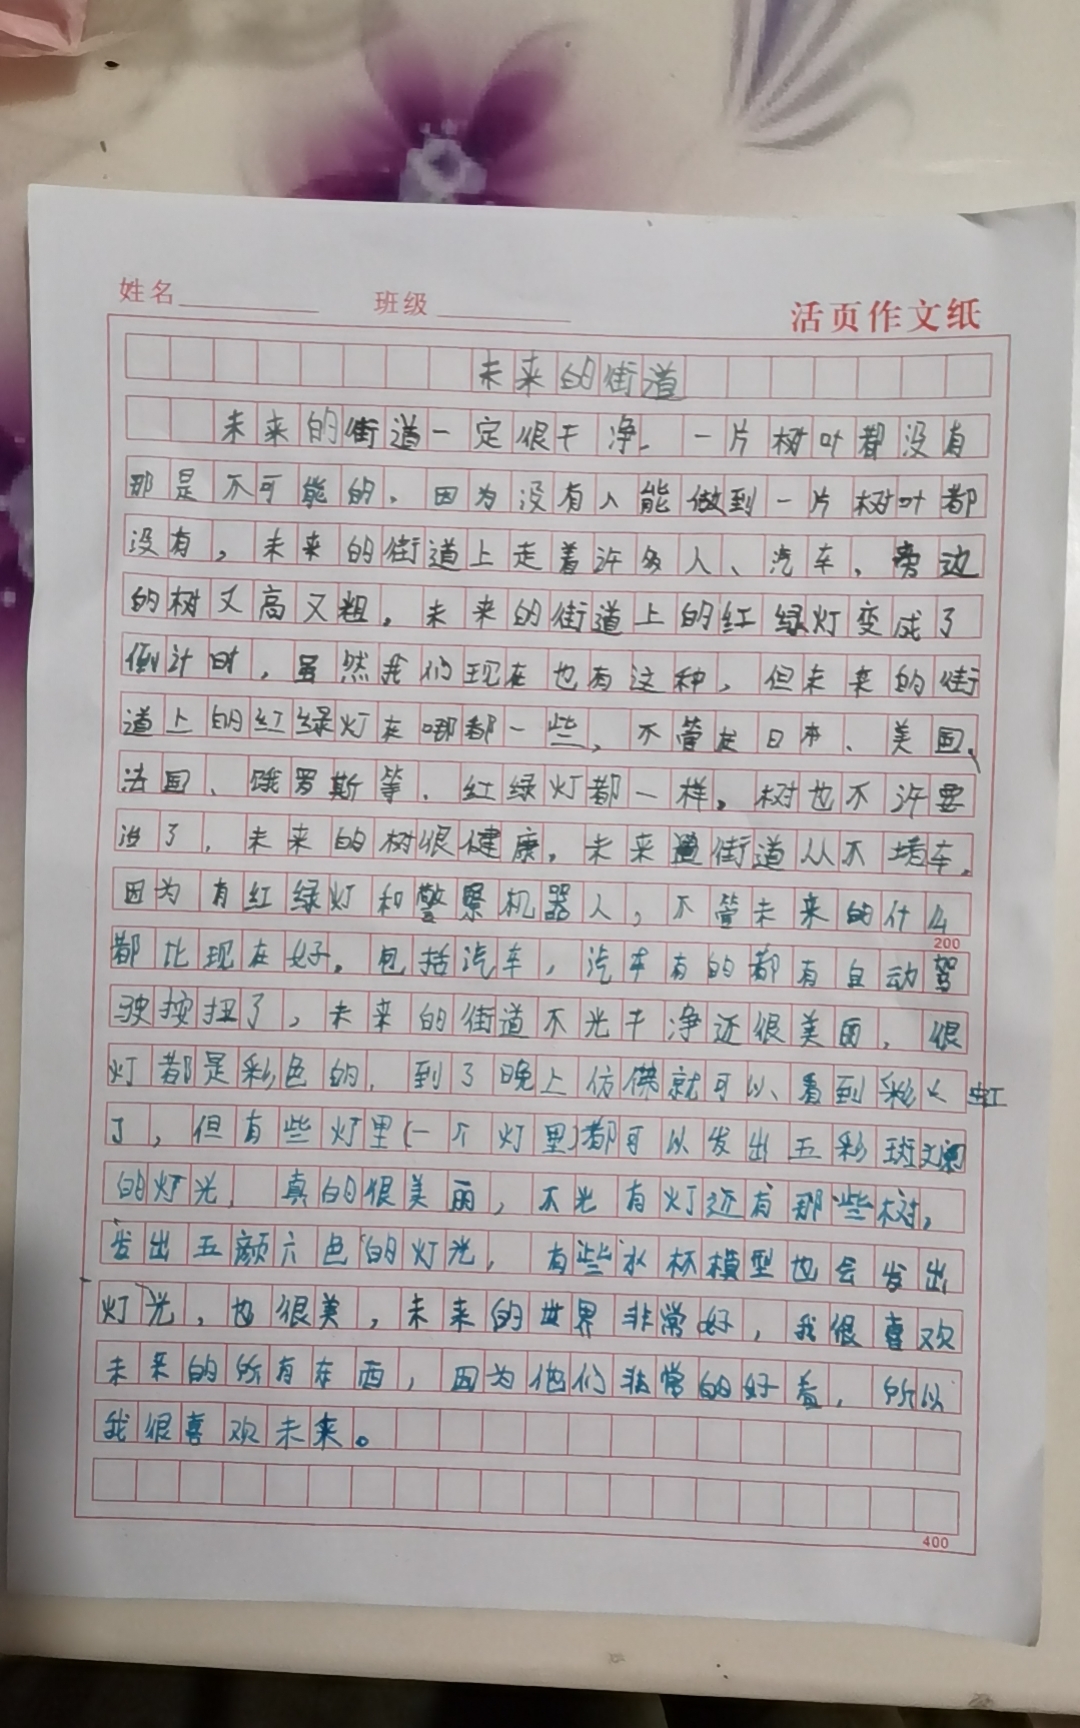 姓名 班级 活页作文纸
未来的街道
未来的街道一定很干净,一片树叶都没有
那是不可能的,因为没有人能做到一片树叶都
没有,未来的街道上走着许多人、汽车,旁边
的树又高又粗,未来的街道上的红绿灯变成了
倒计时,虽然我们现在也有这种,但未来的街
道上的红绿灯在哪都一些,不管在日本、美国、
法国、饿罗斯等,红绿灯都一样。树也不许要
治了,未来的树很健康,未来街道从不堵车,
因为有红绿灯和警察机器人,不管未来的什么
200
都比现在好。包括汽车,汽车有的都有自动驾
驶按扭了,未来的街道不光干净还很美丽,很
灯都是彩色的,到了晚上仿佛就可以看到彩虹
了,但有些灯里(一个灯里)都可以发出五彩斑斓
的灯光,真的很美丽,不光有灯还有那些树,
发出五颜六色的灯光,有些水杯模型也会发出
灯光,也很美,未来的世界非常好,我很喜欢
未来的所有东西,因为他们非常的好看,所以
我很喜欢未来。
400